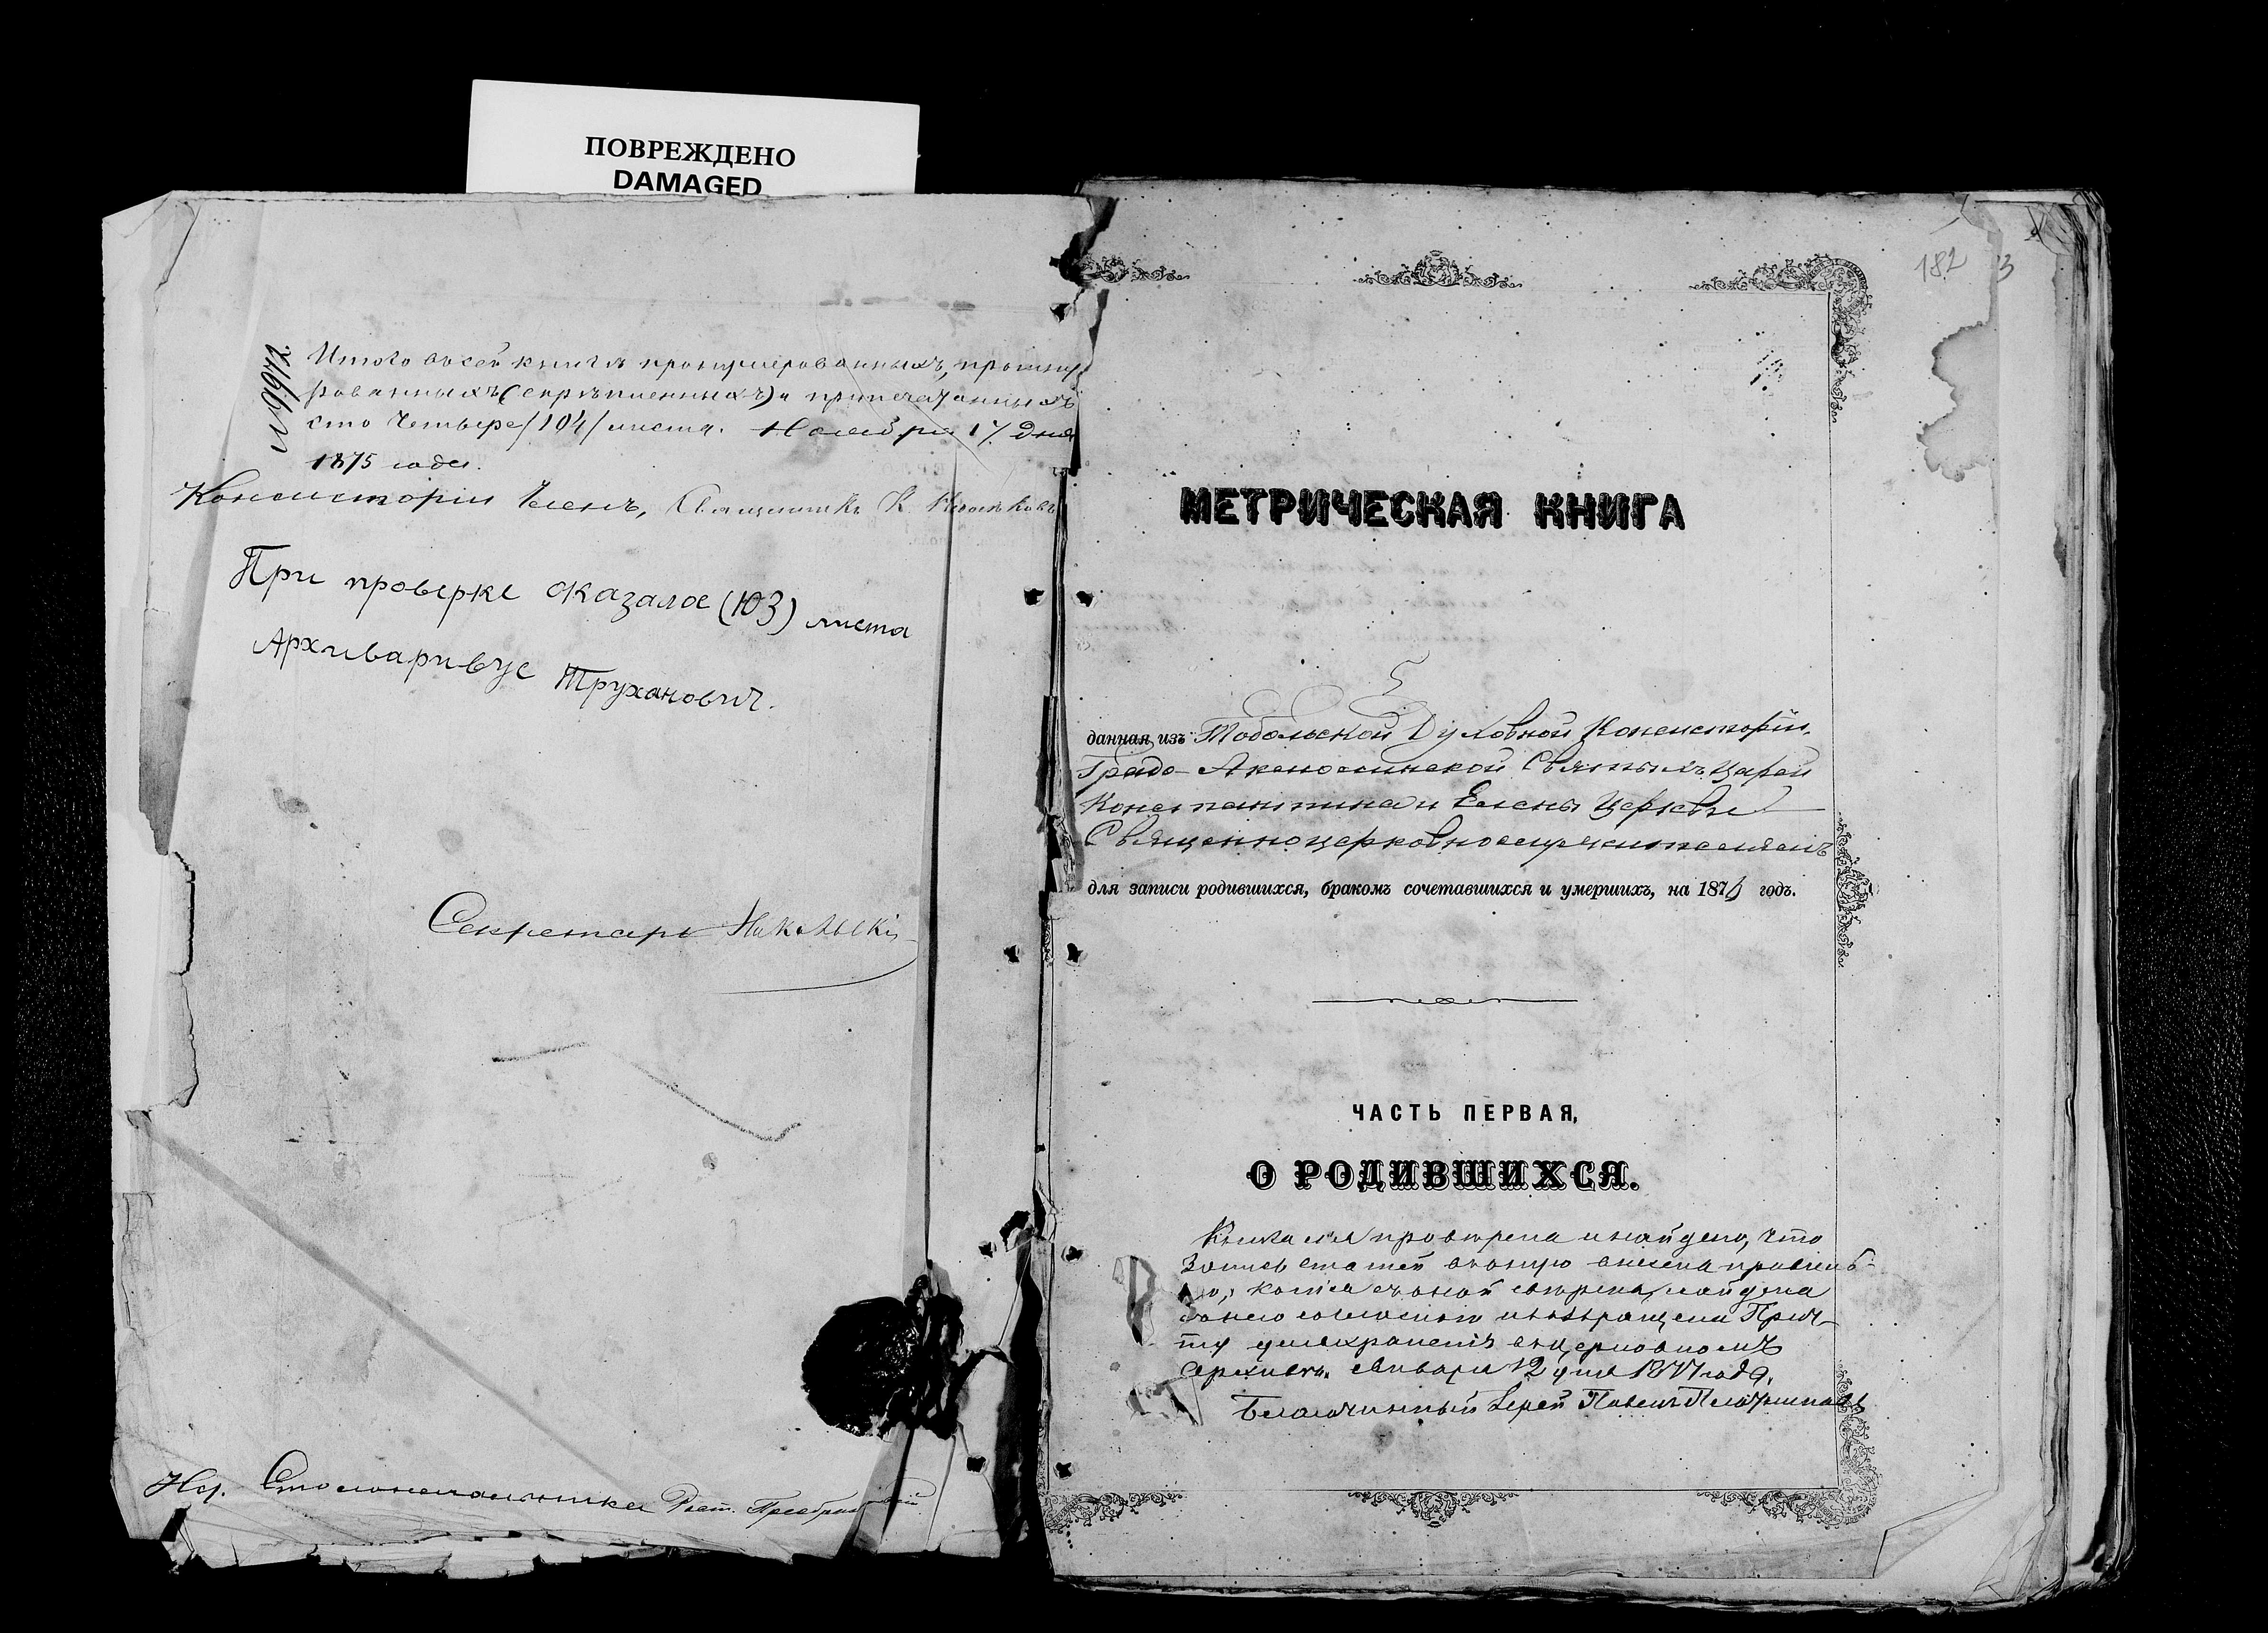 ПОВРЕЖДЕНО
DAMAGED
№ 9972.
Итого въ сей книгѣ пронумерованныхъ, прошну-
рованныхъ (скрѣпленныхъ) и припечатанныхъ
сто четыре /104/ листа. Ноября 17 дня
1875 года.
Консисторіи Членъ, Священникъ К.
При проверке оказалос (103) листа
Архивариус Труханович.
Секретарь Никольскій
Столоначальника
182
3
МЕТРИЧЕСКАЯ КНИГА
данная изъ Тобольской Духовной Консисторіи.
Градо-Акмолинской Святыхъ Царей
Константина и Елены Церкви
Священноцерковнослужителямъ
для записи родившихся, бракомъ сочетавшихся и умершихъ, на 1876 годъ.
ЧАСТЬ ПЕРВАЯ,
О РОДИВШИХСЯ.
Книга сія провѣрена и найдено, что
запись статей въ оную внесена правиль-
но, копія съ оной свѣрена, найдена
съ нею согласною и возвращена Прич-
ту для храненія въ церковномъ
Архивѣ. Января 12 дня 1877 года.
Благочинный Іерей Павелъ